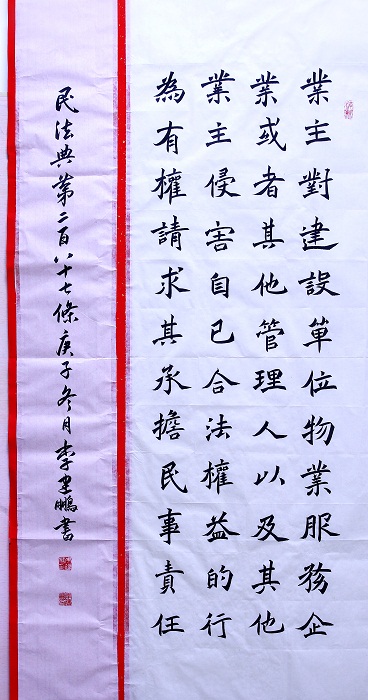 業主對建設單位物業服務企
業或者其他管理人以及其他
業主侵害自己合法權益的行
為有權請求其承擔民事責任
民法典第二百八十七條庚子冬月李建鵬書